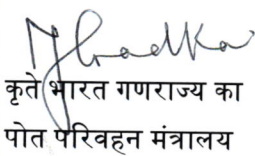 कृते भारत गणराज्य का
पोत परिवहन मंत्रालय